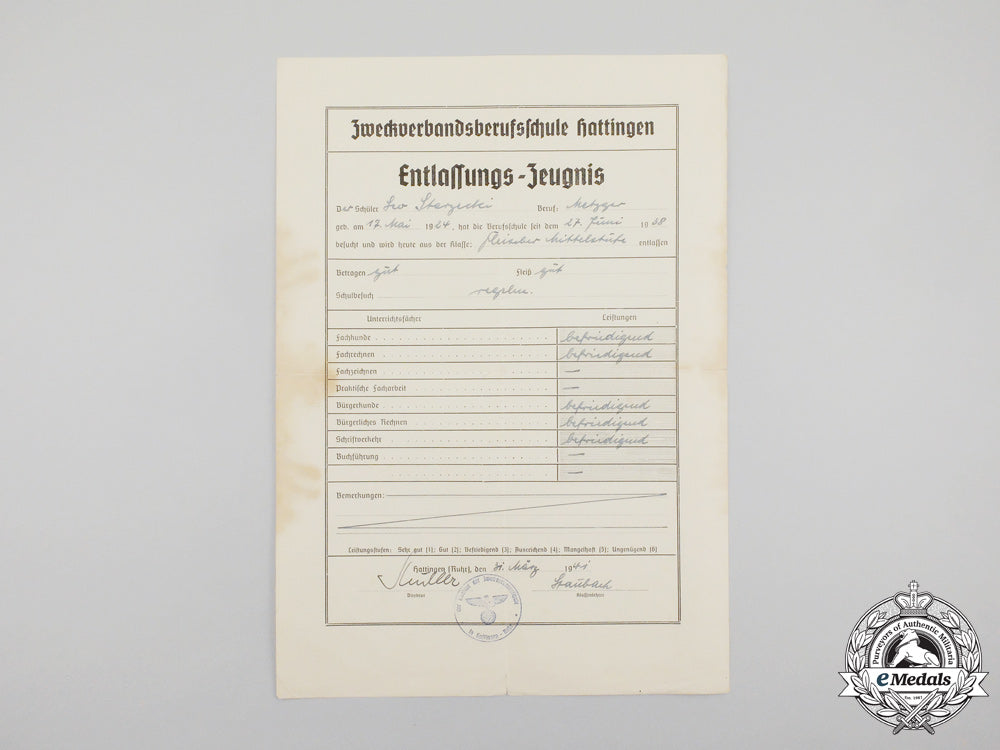 Zweckverbandsberufsschule Hattingen
Entlassungs-Zeugnis
Der Schüler Leo Starzecki Beruf: Metzger
geb. am 17. Mai 1924, hat die Berufsschule seit dem 27. Juni 1938
besucht und wird heute aus der Klasse: Fleischer Mittelstufe entlassen
Betragen gut Fleiß gut
Schulbesuch regelm.
Unterrichtsfächer Leistungen
Fachkunde befriedigend
Fachrechnen befriedigend
Fachzeichnen —
Praktische Facharbeit —
Bürgerkunde befriedigend
Bürgerliches Rechnen befriedigend
Schriftverkehr befriedigend
Buchführung —
—
Bemerkungen:
Leistungsstufen: Sehr gut (1); Gut (2); Befriedigend (3); Ausreichend (4); Mangelhaft (5); Ungenügend (6)
Hattingen (Ruhr), den 31. März 1941
Müller Staubach
Direktor Klassenlehrer
in Hattingen - Ruhr
Purveyors of Authentic Militaria
eMedals
Est. 1987